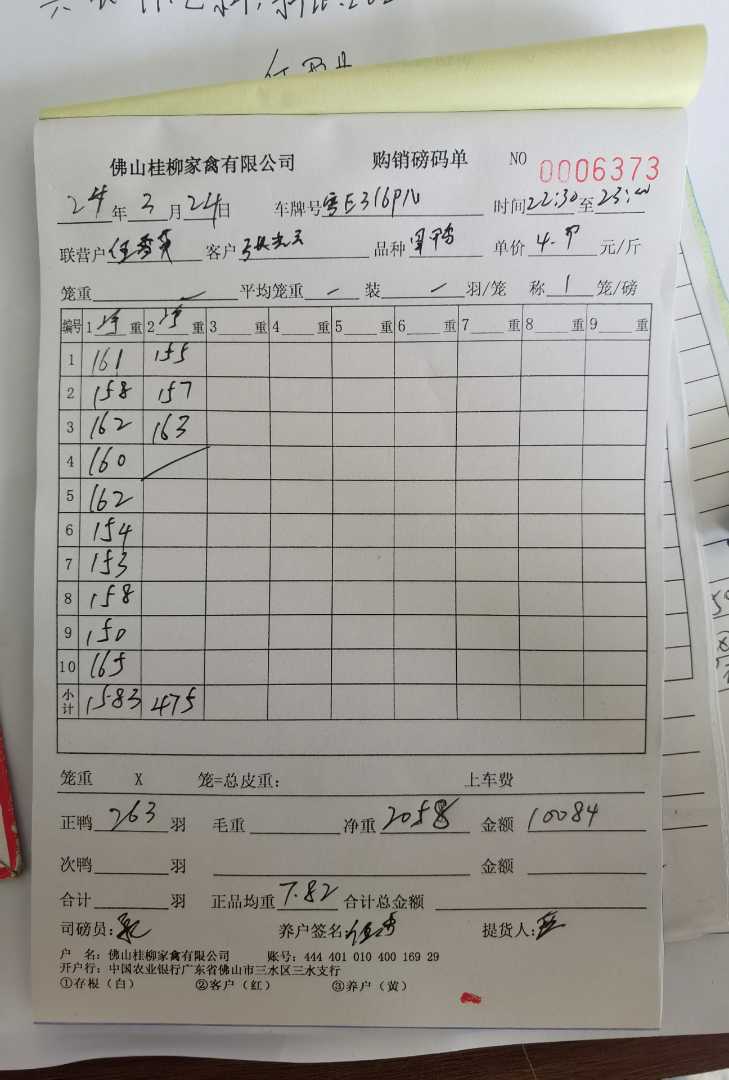 佛山桂柳家禽有限公司 购销磅码单 NO 0006373
24年3月24日 车牌号粤E316PN 时间22:30至23:00
联营户任秀英 客户 品种 单价4.9元/斤
笼重 平均笼重 装 羽/笼 称1笼/磅
编号 1净重 2净重 3重 4重 5重 6重 7重 8重 9重
1 161 155
2 158 157
3 162 163
4 160
5 162
6 154
7 153
8 158
9 150
10 165
小计 1583 475
笼重 X 笼=总皮重: 上车费
正鸭263羽 毛重 净重2058 金额10084
次鸭 羽 金额
合计 羽 正品均重7.82 合计总金额
司磅员: 养户签名: 提货人:
户 名: 佛山桂柳家禽有限公司 账号: 444 401 010 400 169 29
开户行: 中国农业银行广东省佛山市三水区三水支行
①存根（白） ②客户（红） ③养户（黄）